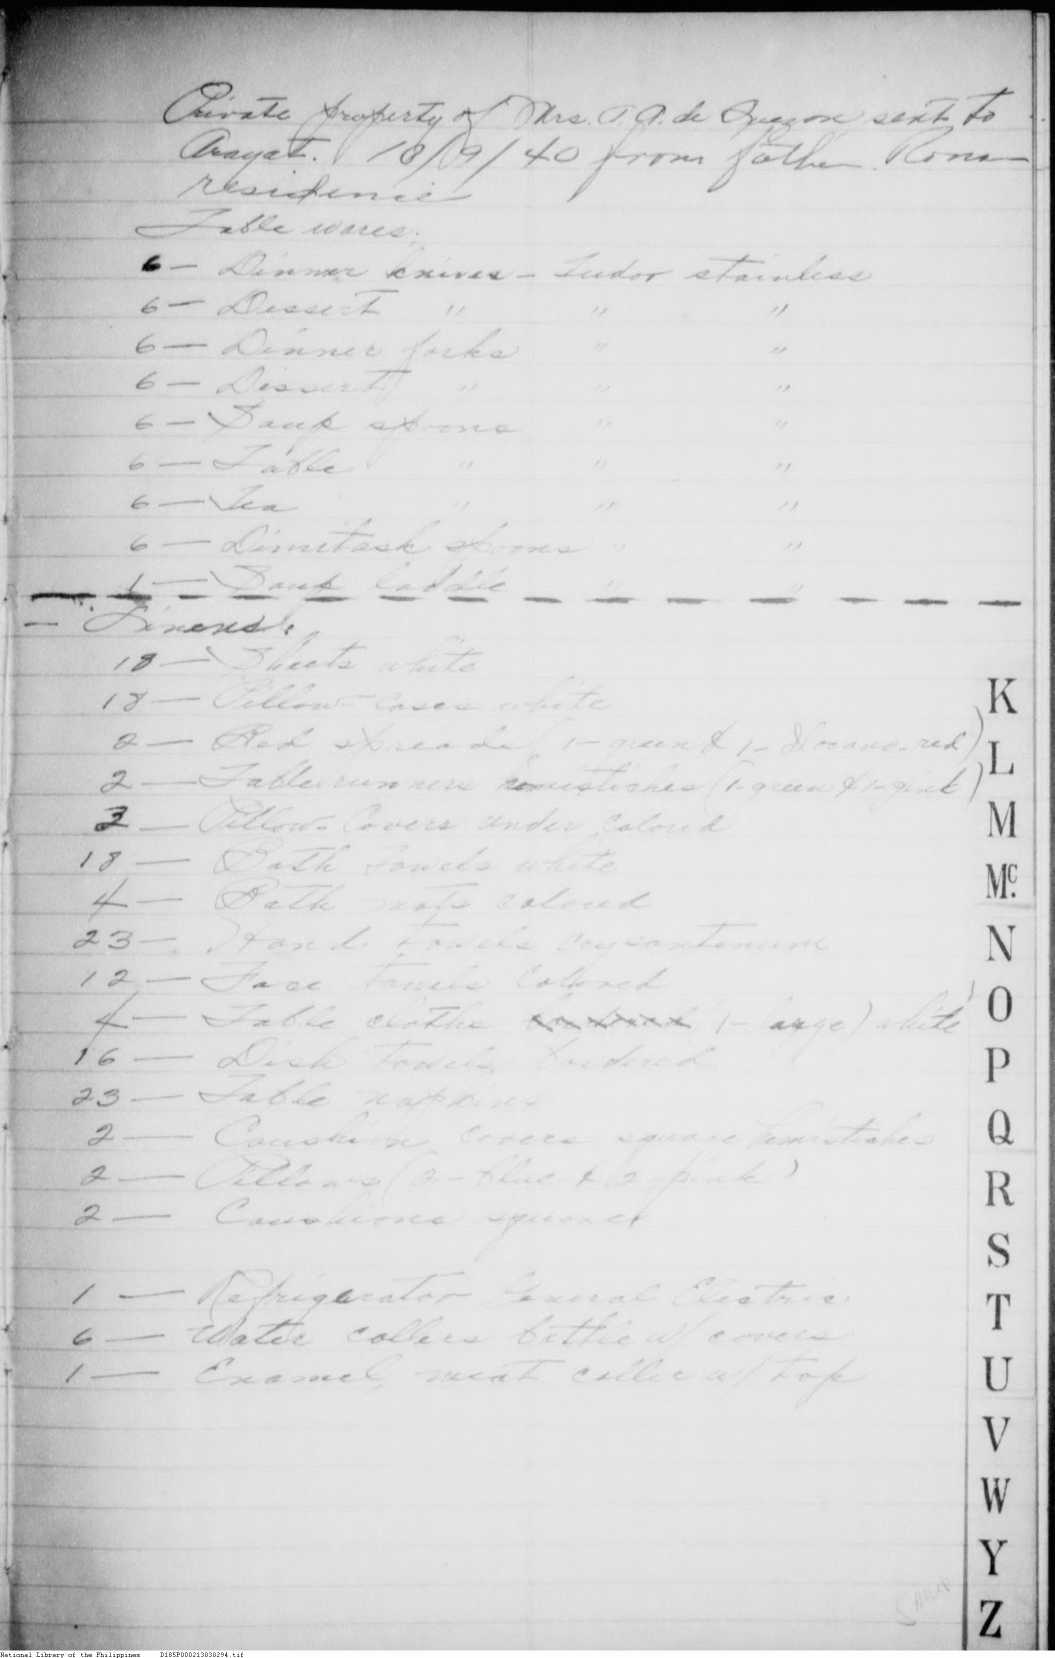 Private property of Mrs. A. A. de Quezon sent to
Arayat. 18/09/40 from father
residencie
Table wares:
6 — Dinner knives — Tudor stainless
6 — Dessert " " "
6 — Dinner forks " "
6 — Dessert " " "
6 — Soup spoons " "
6 — Table " " "
6 — Tea " " "
6 — Dimitask spoons " "
1 — Soup laddle " "
— Linens:
18 — Sheets white
18 — Pillow cases white
2 — Bed spreads (1 - green & 1 - red)
2 — Table runners hemistiches (1-green & 1-pink)
3 — Pillow Covers under colored
18 — Bath towels white
4 — Bath mats colored
23 — Hand towels
12 — Face towels colored
4 — Table cloths (1 - large) white
16 — Dish towels bordered
23 — Table napkins
2 — Coushion covers square hemistiches
2 — Pillows (2 - blue & 2 pink)
2 — Coushions square
1 — Refrigerator General Electric
6 — Water collers bottle w/ covers
1 — Enamel meat coller w/ top
K
L
M
Mc.
N
O
P
Q
R
S
T
U
V
W
Y
Z
National Library of the Philippines D185P000213030294.tif